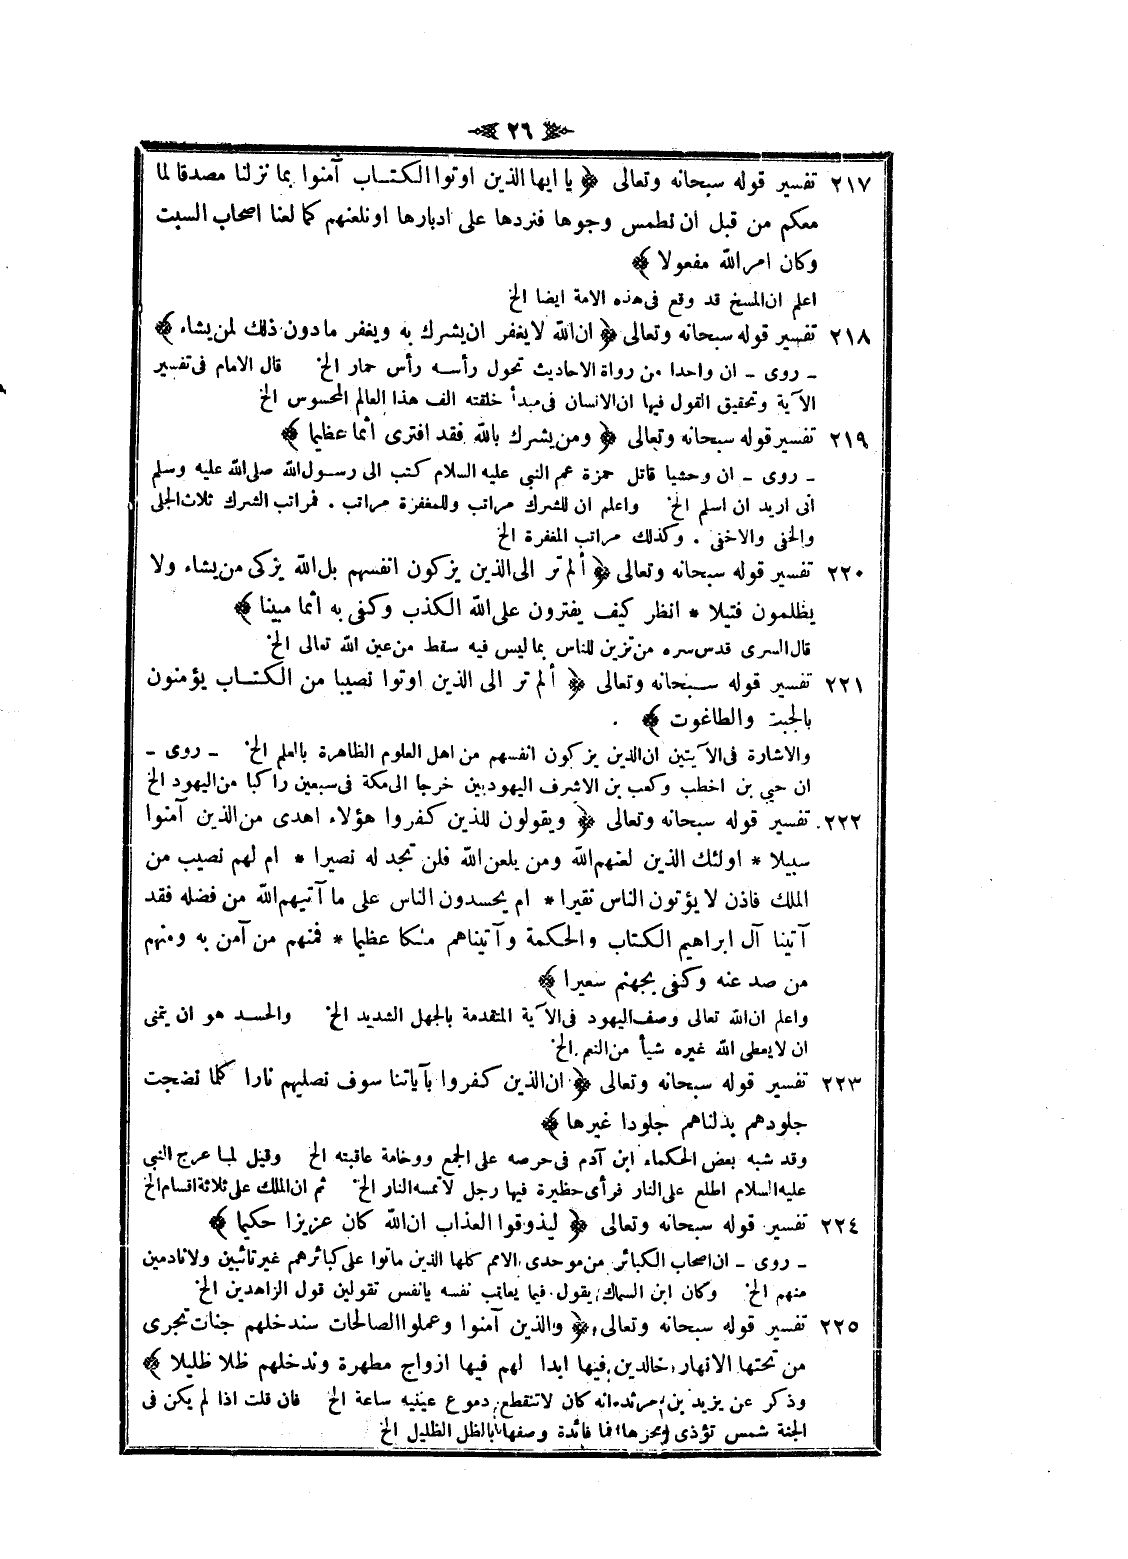 ٢٦
٢١٧ تفسير قوله سبحانه وتعالى ﴿ يا ايها الذين اوتوا الكتاب آمنوا بما نزلنا مصدقا لما
معكم من قبل ان نطمس وجوها فنردها على ادبارها اونلعنهم كما لعنا اصحاب السبت
وكان امرالله مفعولا ﴾
اعلم ان المسخ قد وقع فى هذه الامة ايضا الخ
٢١٨ تفسير قوله سبحانه وتعالى ﴿ ان الله لايغفر ان يشرك به ويغفر مادون ذلك لمن يشاء ﴾
ـ روى ـ ان واحدا من رواة الاحاديث تحول رأسه رأس حمار الخ قال الامام فى تفسير
الآية وتحقيق القول فيها ان الانسان فى مبدأ خلقته الف هذا العالم المحسوس الخ
٢١٩ تفسير قوله سبحانه وتعالى ﴿ ومن يشرك بالله فقد افترى اثما عظيما ﴾
ـ روى ـ ان وحشيا قاتل حمزة عم النبي عليه السلام كتب الى رسول الله صلى الله عليه وسلم
انى اريد ان اسلم الخ واعلم ان للشرك مراتب وللمغفرة مراتب . فمراتب الشرك ثلاث الجلى
والخفى والاخفى . وكذلك مراتب المغفرة الخ
٢٢٠ تفسير قوله سبحانه وتعالى ﴿ ألم تر الى الذين يزكون انفسهم بل الله يزكى من يشاء ولا
يظلمون فتيلا * انظر كيف يفترون على الله الكذب وكفى به اثما مبينا ﴾
قال السرى قدس سره من تزين للناس بما ليس فيه سقط من عين الله تعالى الخ
٢٢١ تفسير قوله سبحانه وتعالى ﴿ ألم تر الى الذين اوتوا نصيبا من الكتاب يؤمنون
بالجبت والطاغوت ﴾ .
والاشارة فى الآيتين ان الذين يزكون انفسهم من اهل العلوم الظاهرة بالعلم الخ ـ روى ـ
ان حيي بن اخطب وكعب بن الاشرف اليهوديين خرجا الى مكة فى سبعين راكبا من اليهود الخ
٢٢٢. تفسير قوله سبحانه وتعالى ﴿ ويقولون للذين كفروا هؤلاء اهدى من الذين آمنوا
سبيلا * اولئك الذين لعنهم الله ومن يلعن الله فلن تجد له نصيرا * ام لهم نصيب من
الملك فاذن لا يؤتون الناس نقيرا * ام يحسدون الناس على ما آتيهم الله من فضله فقد
آتينا آل ابراهيم الكتاب والحكمة وآتيناهم ملكا عظيما * فمنهم من آمن به ومنهم
من صد عنه وكفى بجهنم سعيرا ﴾
واعلم ان الله تعالى وصف اليهود فى الآية المتقدمة بالجهل الشديد الخ والحسد هو ان يتمنى
ان لا يعطى الله غيره شيأ من النعم الخ
٢٢٣ تفسير قوله سبحانه وتعالى ﴿ ان الذين كفروا بآياتنا سوف نصليهم نارا كلما نضجت
جلودهم بدلناهم جلودا غيرها ﴾
وقد شبه بعض الحكماء ابن آدم فى حرصه على الجمع ووخامة عاقبته الخ وقيل لما عرج النبي
عليه السلام اطلع على النار فرأى حظيرة فيها رجل لا تمسه النار الخ ثم ان الملك على ثلاثة اقسام الخ
٢٢٤ تفسير قوله سبحانه وتعالى ﴿ ليذوقوا العذاب ان الله كان عزيزا حكيما ﴾
ـ روى ـ ان اصحاب الكبائر من موحدى الامم كلها الذين ماتوا على كبائرهم غير تائبين ولا نادمين
منهم الخ وكان ابن السماك يقول فيما يعاتب نفسه يانفس تقولين قول الزاهدين الخ
٢٢٥ تفسير قوله سبحانه وتعالى ﴿ والذين آمنوا وعملوا الصالحات سندخلهم جنات تجرى
من تحتها الانهار خالدين فيها ابدا لهم فيها ازواج مطهرة وندخلهم ظلا ظليلا ﴾
وذكر عن يزيد بن مرثد انه كان لا تنقطع دموع عينيه ساعة الخ فان قلت اذا لم يكن فى
الجنة شمس تؤذى بحرها فما فائدة وصفها بالظل الظليل الخ